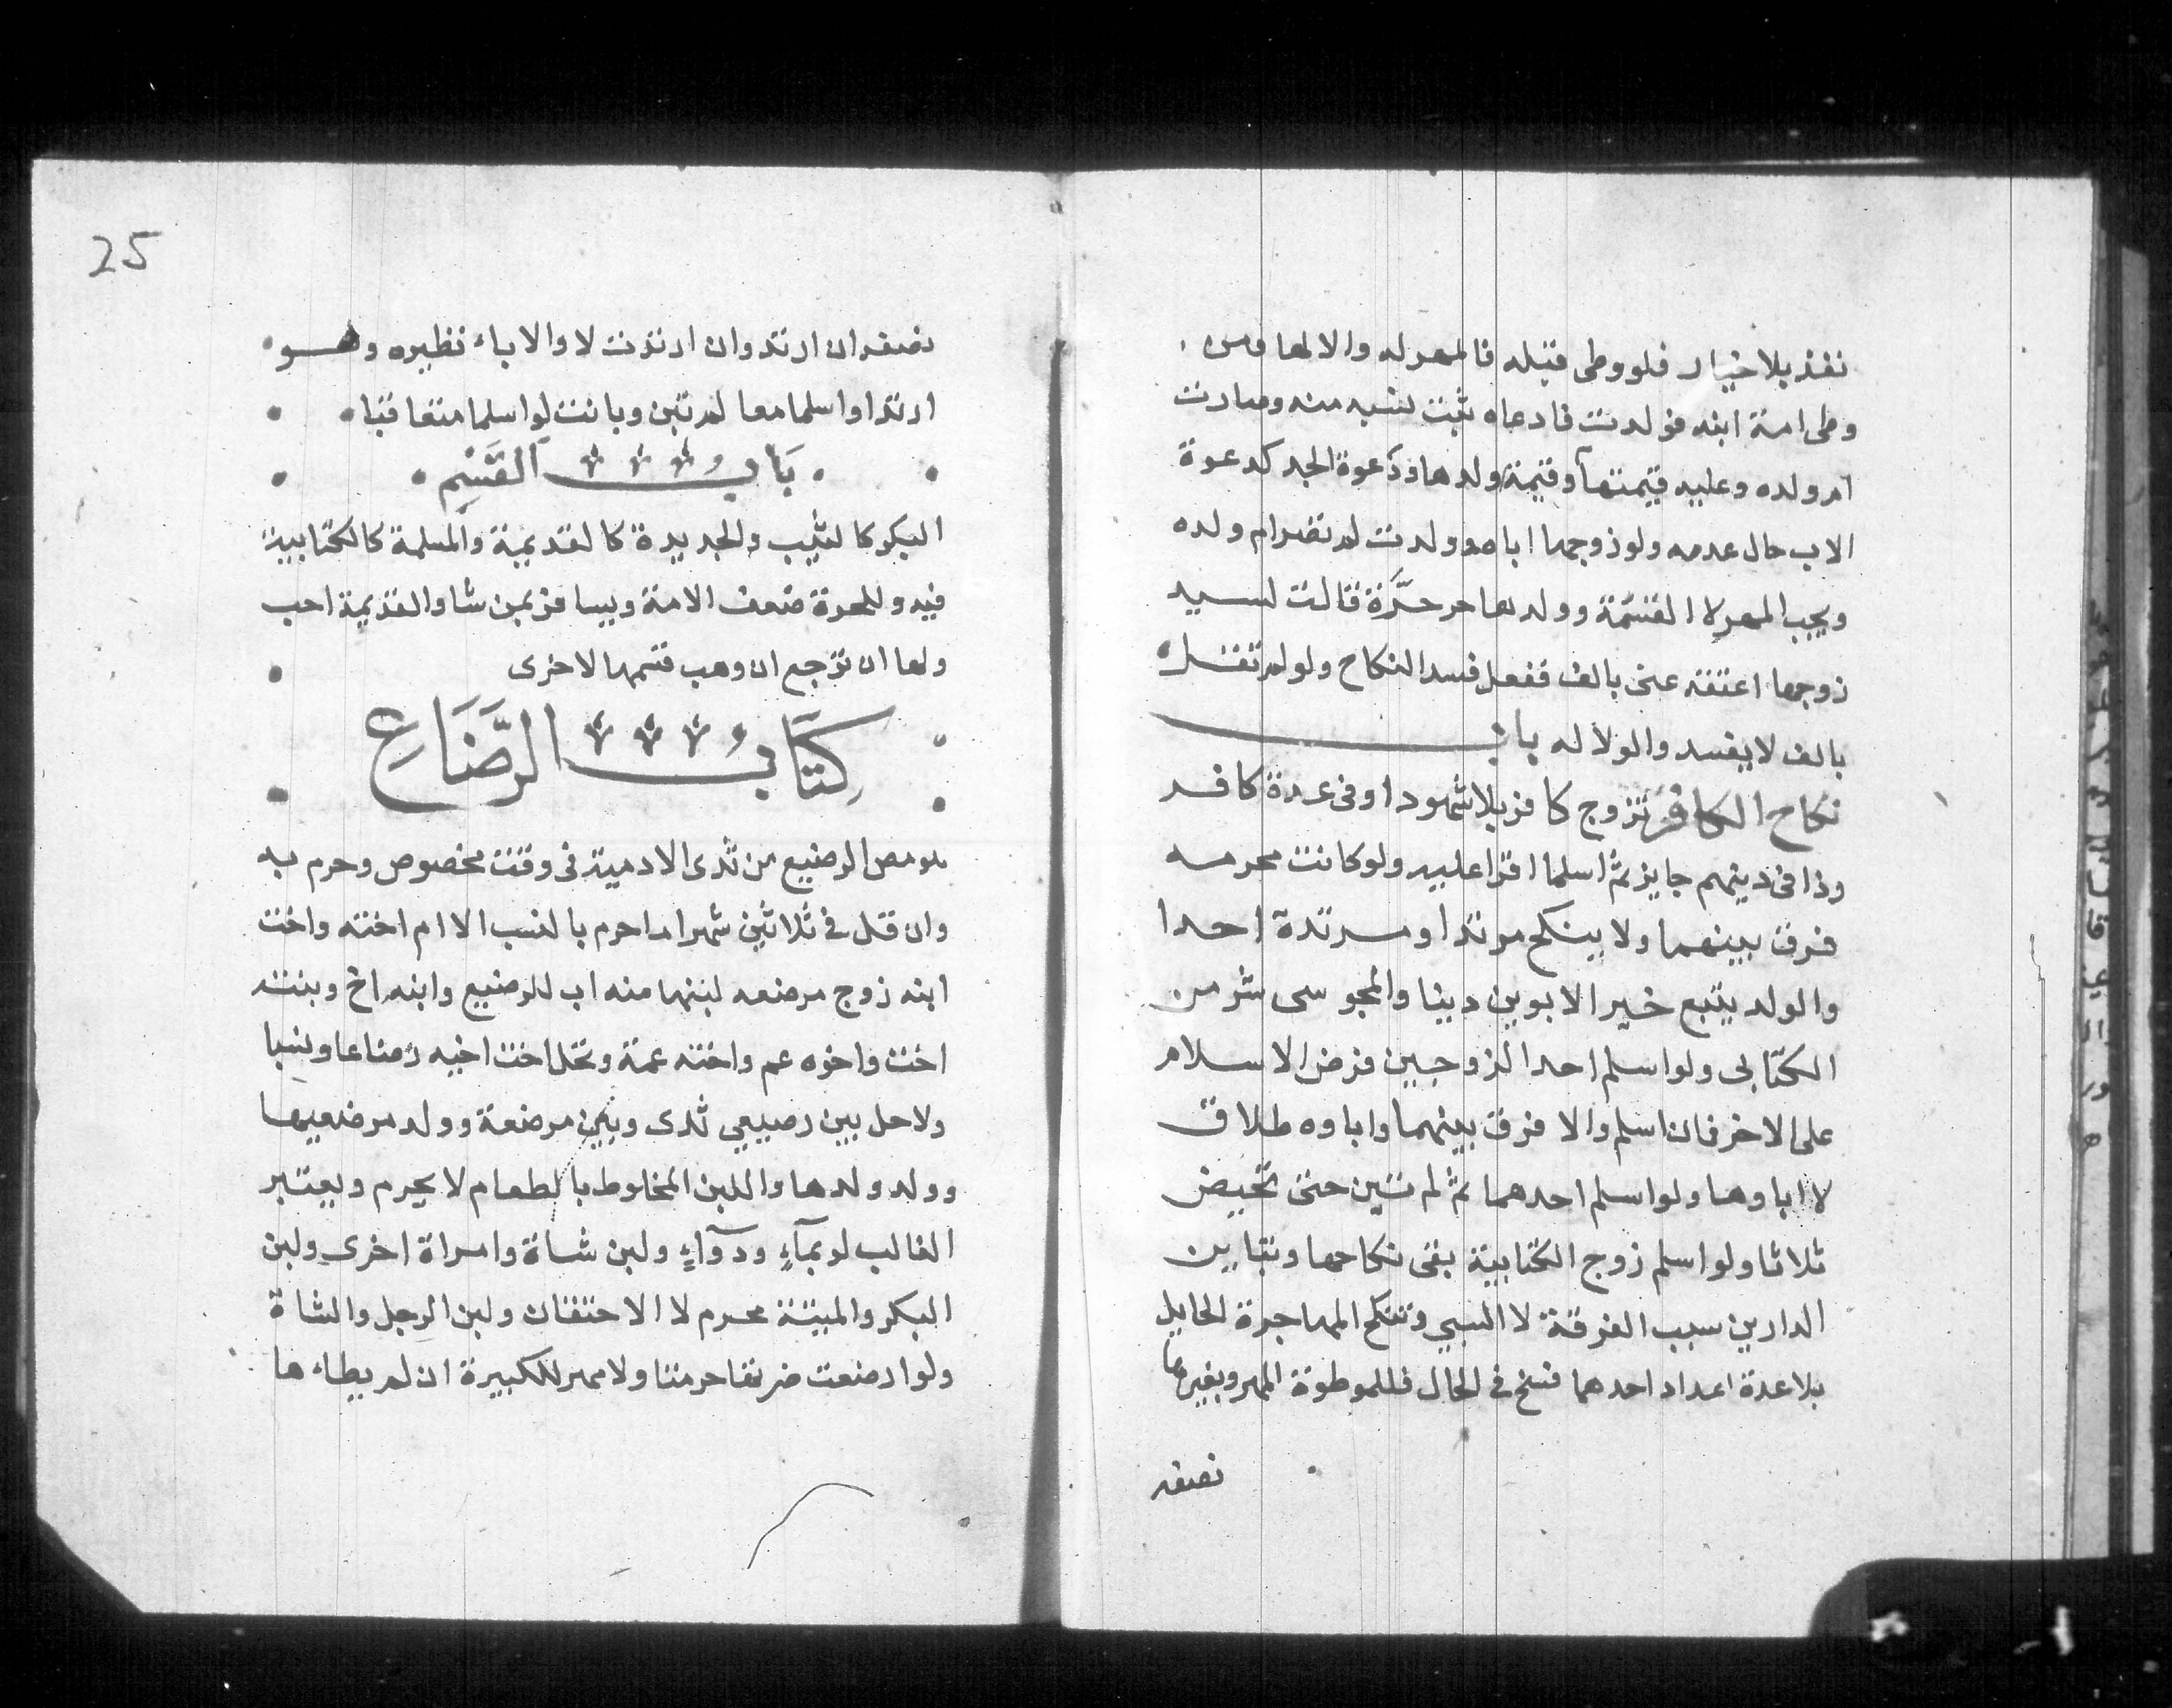 نفذ بلا خيار فلو وطى قبله فالمهر له والا لها ومن
وطى امة ابنه فولدت فادعاه ثبت نسبه منه وصارت
ام ولده وعليه قيمتها وقيمة ولدها ودعوة الجد كدعوة
الاب حال عدمه ولو زوجها اباه وولدت لم تصر ام ولده
ويجب المهر لا القيمة وولدها حر حرة قالت لسيد
زوجها اعتقه عنى بالف ففعل فسد النكاح ولو لم تقل
بالف لا يفسد والولا له باب
نكاح الكافر تزوج كافر بلا شهود او فى عدة كافر
وذا فى دينهم جايز ثم اسلما اقرا عليه ولو كانت محرمه
فرق بينهما ولا ينكح مرتد او مرتدة احدا
والولد يتبع خير الابوين دينا والمجوسى شر من
الكتابى ولو اسلم احد الزوجين عرض الاسلام
على الاخر فان اسلم والا فرق بينهما واباوه طلاق
لا اباوها ولو اسلم احدهما ثم لم تبن حتى تحيض
ثلاثا ولو اسلم زوج الكتابية بقى نكاحها وتباين
الدارين سبب الفرقة لا السبي وتنكح المهاجرة الحايل
بلا عدة ارتداد احدهما فسخ فى الحال فللموطوة المهر وبغيرها
نصفه
نصفه ان ارتد وان ارتدت لا والاباء نظيره وهو
ارتدا واسلما معا لم تبن وبانت لو اسلما متعاقبا
باب القسم
البكر كالثيب والجديدة كالقديمة والمسلمة كالكتابية
فيه وللحرة ضعف الامة ويسافر بمن شا والقديمة احب
ولها ان ترجع ان وهب قسمها لاخرى
كتاب الرضاع
هو مص الرضيع من ثدى الادمية فى وقت مخصوص وحرم به
وان قل فى ثلاثين شهرا ما حرم بالنسب الا ام اخته واخت
ابنه زوج مرضعه لبنها منه اب للرضيع وابنه اخ وبنته
اخت واخوه عم واخته عمة وتحل اخت اخيه رضاعا ونسبا
ولا حل بين رضيعي ثدى وبين مرضعة وولد مرضعيها
وولد ولدها واللبن المخلوط بالطعام لا يحرم ويعتبر
الغالب لو بماء ودواء ولبن شاة وامراة اخرى ولبن
البكر والميتة محرم لا الاحتقان ولبن الرجل والشاة
ولو ارضعت ضرتها حرمتا ولا مهر للكبيرة ان لم يطاءها
25